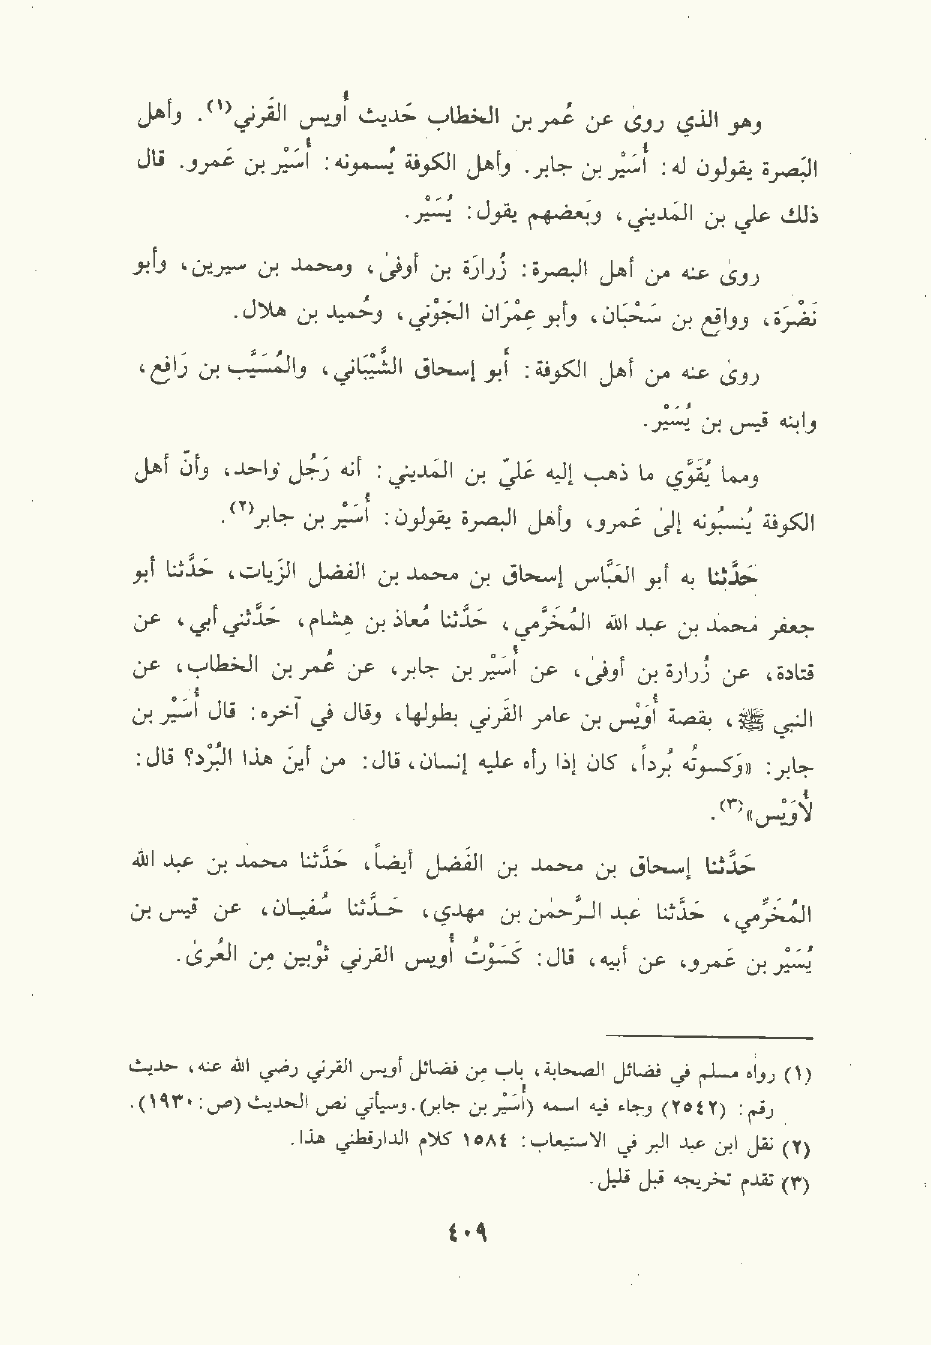 وهو الذي روىٰ عن عُمر بن الخطاب حَديث أُويس القَرني(١). وأهل
البَصرة يقولون له: أُسَيْر بن جابر. وأهل الكوفة يُسمونه: أُسَيْر بن عَمرو. قال
ذلك علي بن المَديني، وبَعضهم يقول: يُسَيْر.
روىٰ عنه من أهل البصرة: زُرَارَة بن أوفىٰ، ومحمد بن سيرين، وأبو
نَضْرَة، ورافع بن سَحْبَان، وأبو عِمْرَان الجَوْني، وحُميد بن هلال.
روىٰ عنه من أهل الكوفة: أبو إسحاق الشَّيْبَاني، والمُسَيَّب بن رَافع،
وابنه قيس بن يُسَيْر.
ومما يُقَوِّي ما ذهب إليه عَليّ بن المَديني: أنه رَجُل واحد، وأنّ أهل
الكوفة يُنسبُونه إلىٰ عَمرو، وأهل البصرة يقولون: أُسَيْر بن جابر(٢).
حَدَّثنا به أبو العَبَّاس إسحاق بن محمد بن الفضل الزيات، حَدَّثنا أبو
جعفر محمد بن عبد الله المُخَرَّمي، حَدَّثنا مُعاذ بن هِشام، حَدَّثني أبي، عن
قتادة، عن زُرارة بن أوفىٰ، عن أُسَيْر بن جابر، عن عُمر بن الخطاب، عن
النبي ﷺ، بقصة أُوَيْس بن عامر القَرني بطولها، وقال في آخره: قال أُسَيْر بن
جابر: «وَكسوتُه بُرداً، كان إذا رآه عليه إنسان، قال: من أينَ هذا البُرْد؟ قال:
لأُوَيْس»(٣).
حَدَّثنا إسحاق بن محمد بن الفَضل أيضاً، حَدَّثنا محمد بن عبد الله
المُخَرِّمي، حَدَّثنا عبد الرَّحمٰن بن مهدي، حَدَّثنا سُفيان، عن قيس بن
يُسَيْر بن عَمرو، عن أبيه، قال: كَسَوْتُ أُويس القرني ثوْبين مِن العُرىٰ.
(١) رواه مسلم في فضائل الصحابة، باب مِن فضائل أويس القرني رضي الله عنه، حديث
رقم: (٢٥٤٢) وجاء فيه اسمه (أُسَيْر بن جابر). وسيأتي نص الحديث (ص: ١٩٣٠).
(٢) نقل ابن عبد البر في الاستيعاب: ١٥٨٤ كلام الدارقطني هذا.
(٣) تقدم تخريجه قبل قليل.
٤٠٩